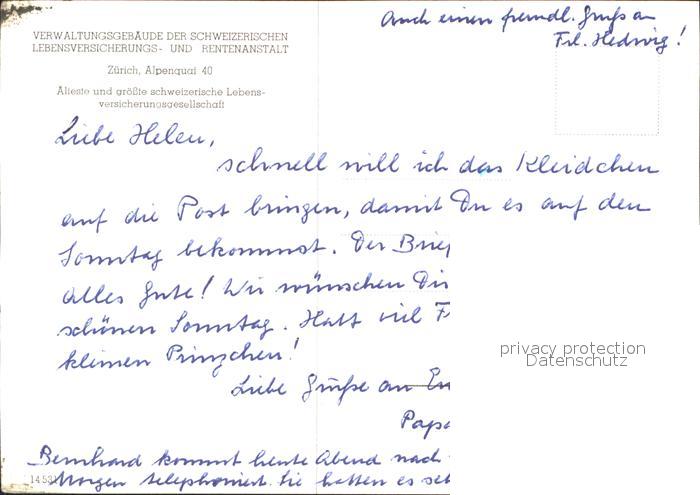 Auch einen freundl. Gruß an
Frl. Hedwig!
VERWALTUNGSGEBÄUDE DER SCHWEIZERISCHEN
LEBENSVERSICHERUNGS- UND RENTENANSTALT
Zürich, Alpenquai 40
Älteste und größte schweizerische Lebens-
versicherungsgesellschaft
Liebe Helen,
schnell will ich das Kleidchen
auf die Post bringen, damit Du es auf den
Sonntag bekommst. Der Brief
alles Gute! Wir wünschen Dir
schönen Sonntag. Habt viel F
kleinen Prinzchen!
privacy protection
Datenschutz
Liebe Grüße an
Papa
Bernhard kommt heute Abend nach
Morgen telephoniert. Sie hatten es